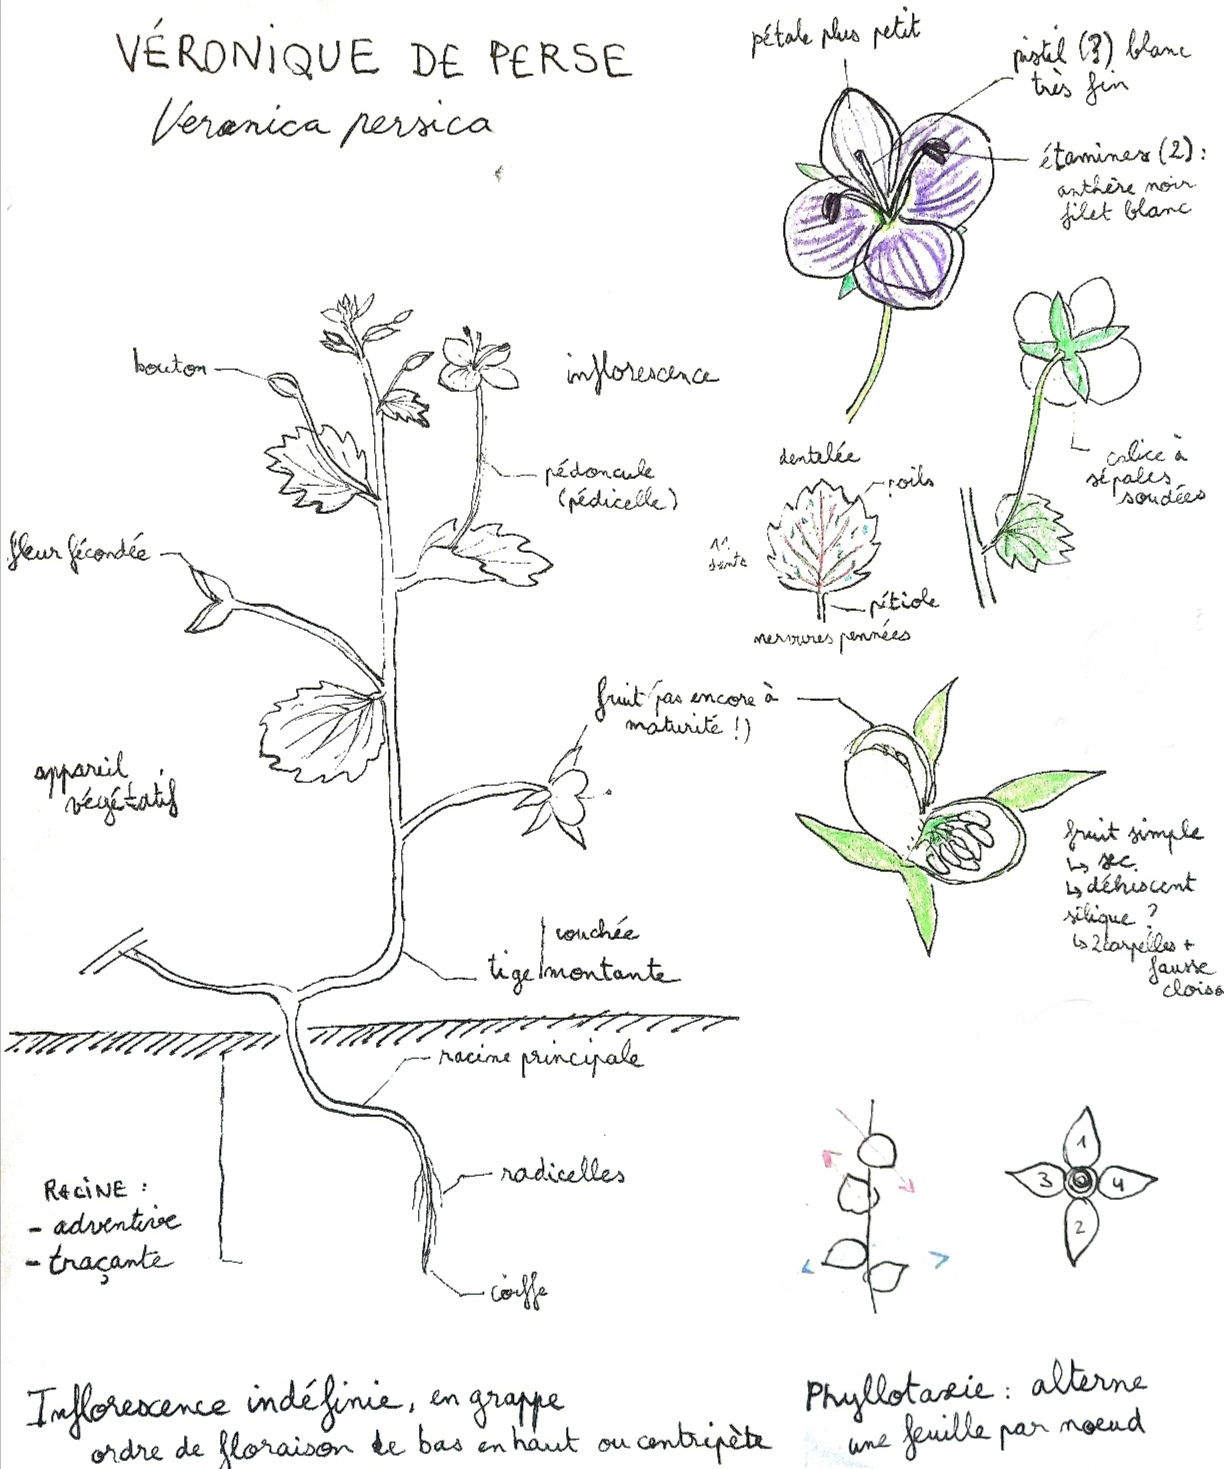 VÉRONIQUE DE PERSE
Veronica persica
pétale plus petit
pistil (?) blanc
très fin
étamines (2) :
anthère noir
filet blanc
bouton
inflorescence
pédoncule
(pédicelle)
fleur fécondée
dentelée
poils
11
dents
pétiole
nervures pennées
calice à
sépales
soudées
fruit (pas encore à
maturité !)
appareil
végétatif
fruit simple
↳ sec
↳ déhiscent
silique ?
↳ 2 carpelles +
fausse
cloiso
couchée
tige montante
racine principale
RACINE :
- adventive
- traçante
radicelles
coiffe
1
3 4
2
Inflorescence indéfinie, en grappe
ordre de floraison de bas en haut ou centripète
Phyllotaxie : alterne
une feuille par noeud